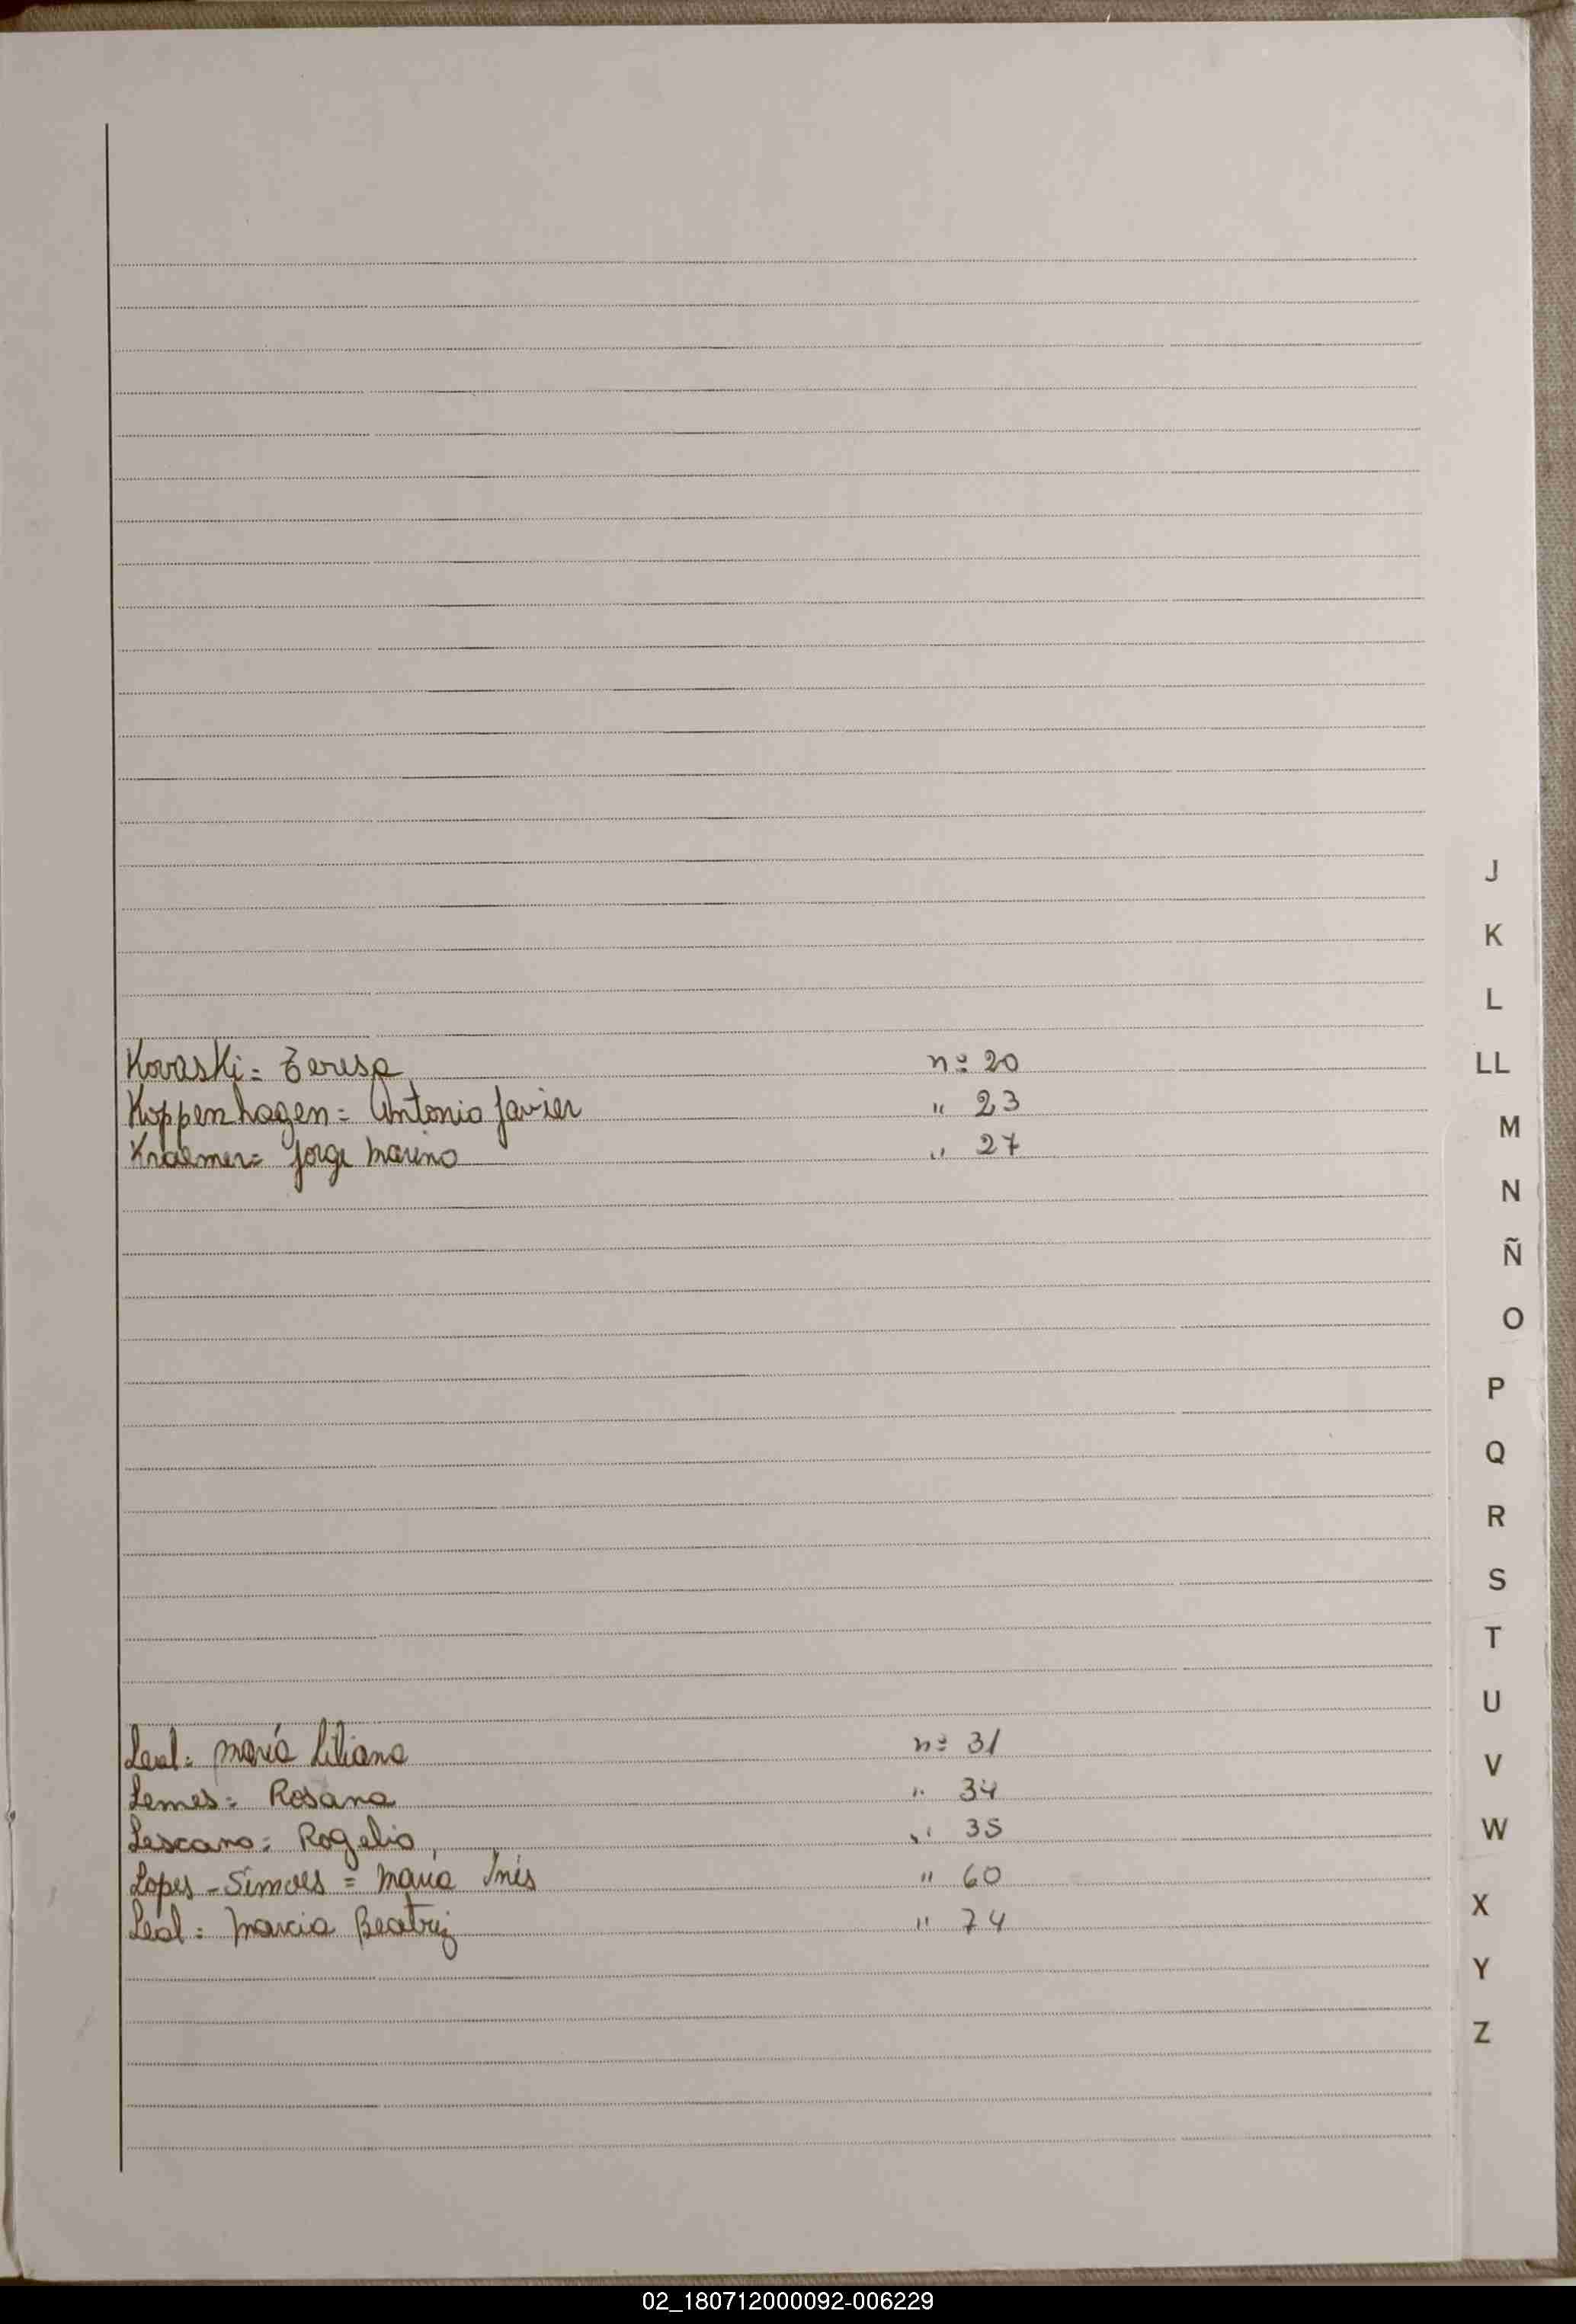 J
K
L
Kovaski = Teresa nº 20
LL
Koppenhagen = Antonio Javier " 23
M
Kraemer = Jorge Marino " 27
N
Ñ
O
P
Q
R
S
T
U
Leal = María Liliana nº 31
V
Lemes = Rosana " 34
Lescano = Rogelio " 35
W
Lopes - Simoes = María Inés " 60
X
Leal = Marcia Beatriz " 74
Y
Z
02_180712000092-006229